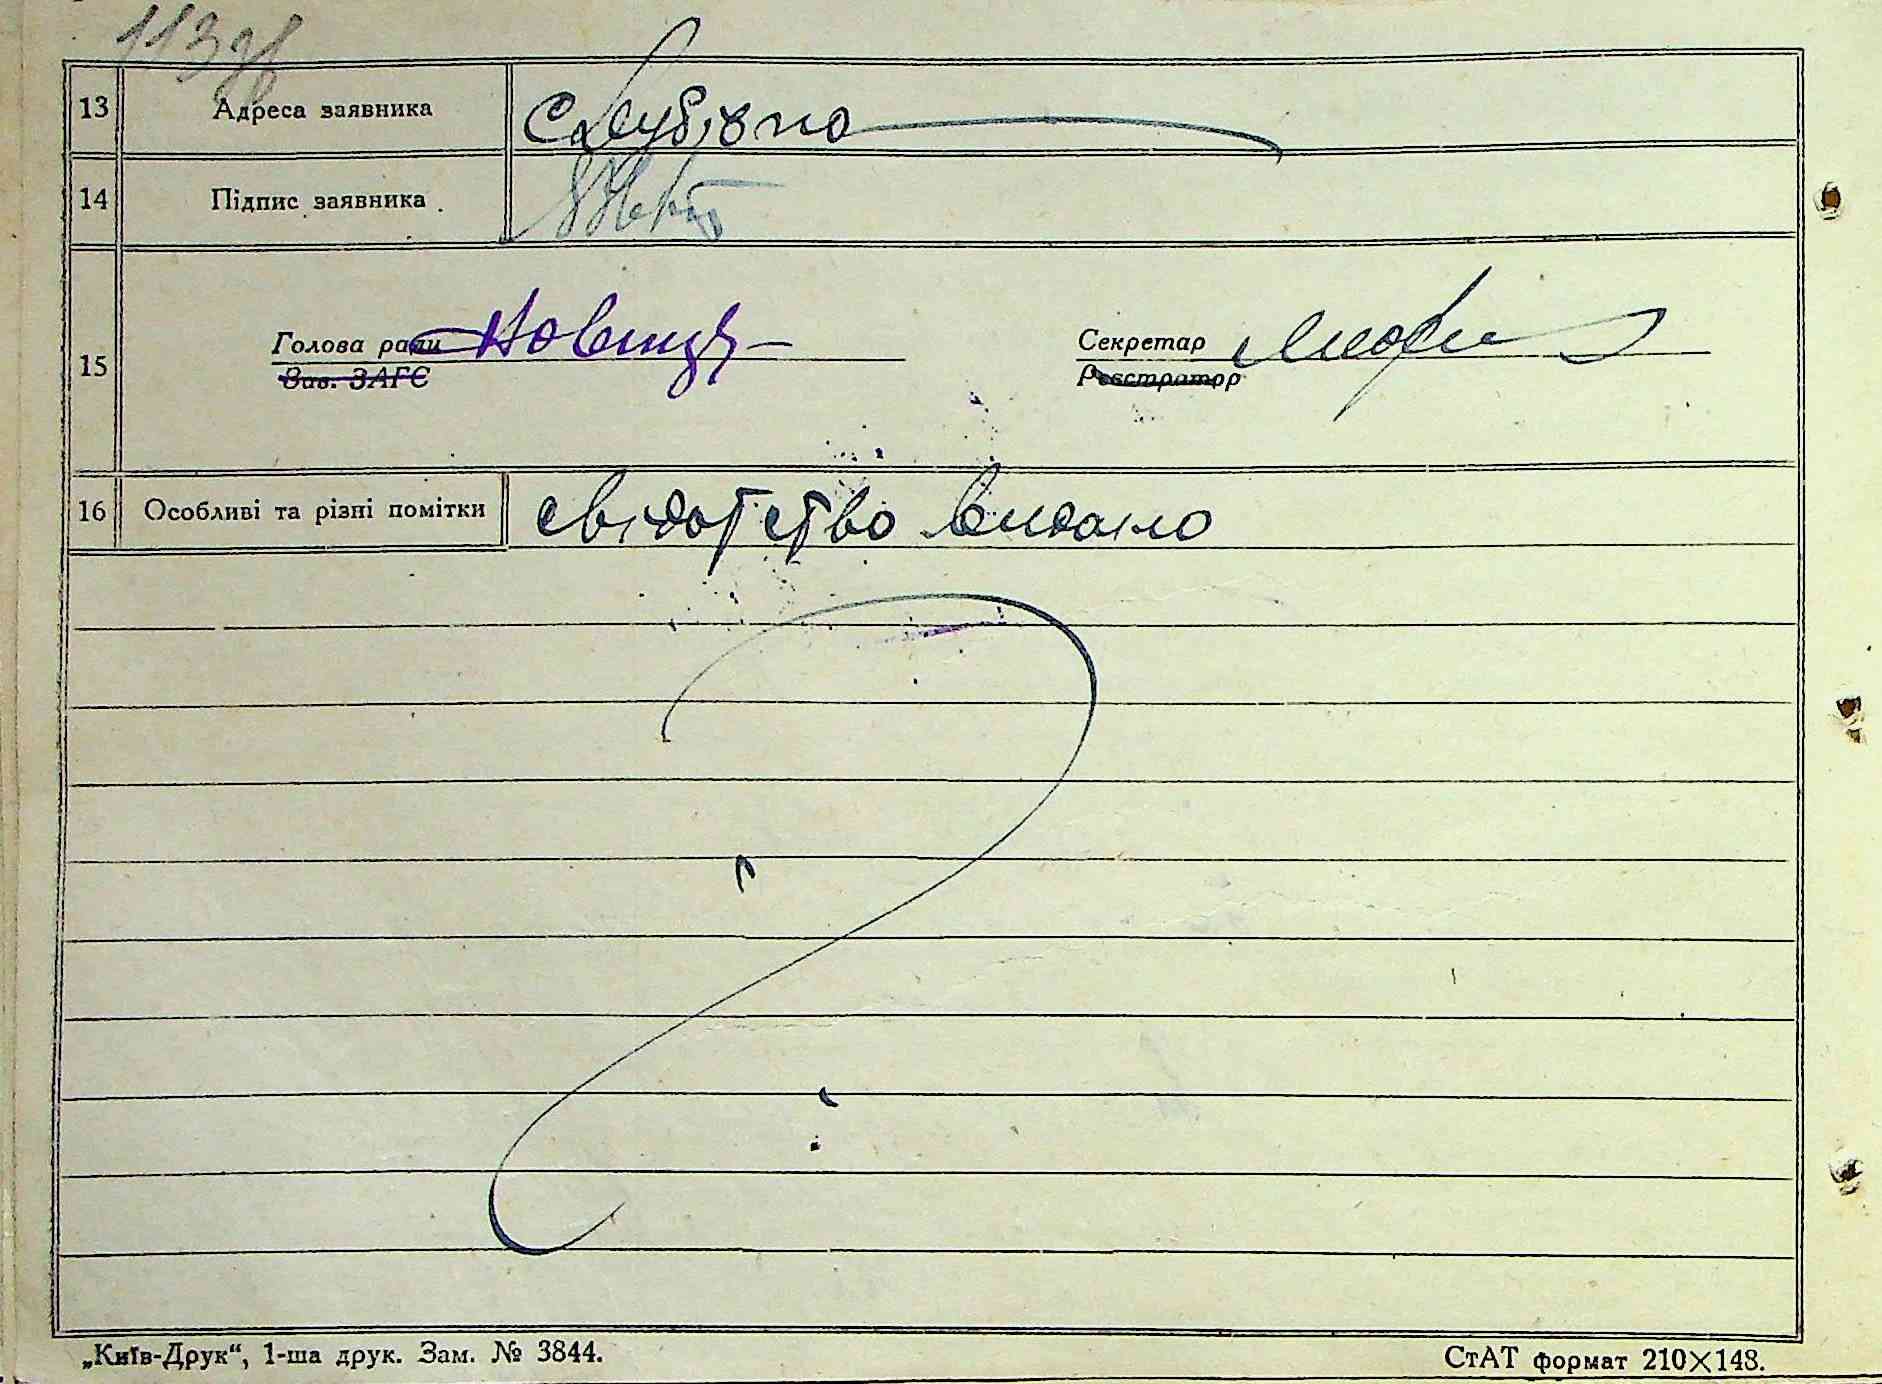 113зв
13 Адреса заявника
14 Підпис заявника
15 Голова ради Секретар
Зав. ЗАГС Реєстратор
16 Особливі та різні помітки свідотство видано
„Київ-Друк“, 1-ша друк. Зам. № 3844. СтАТ формат 210×148.